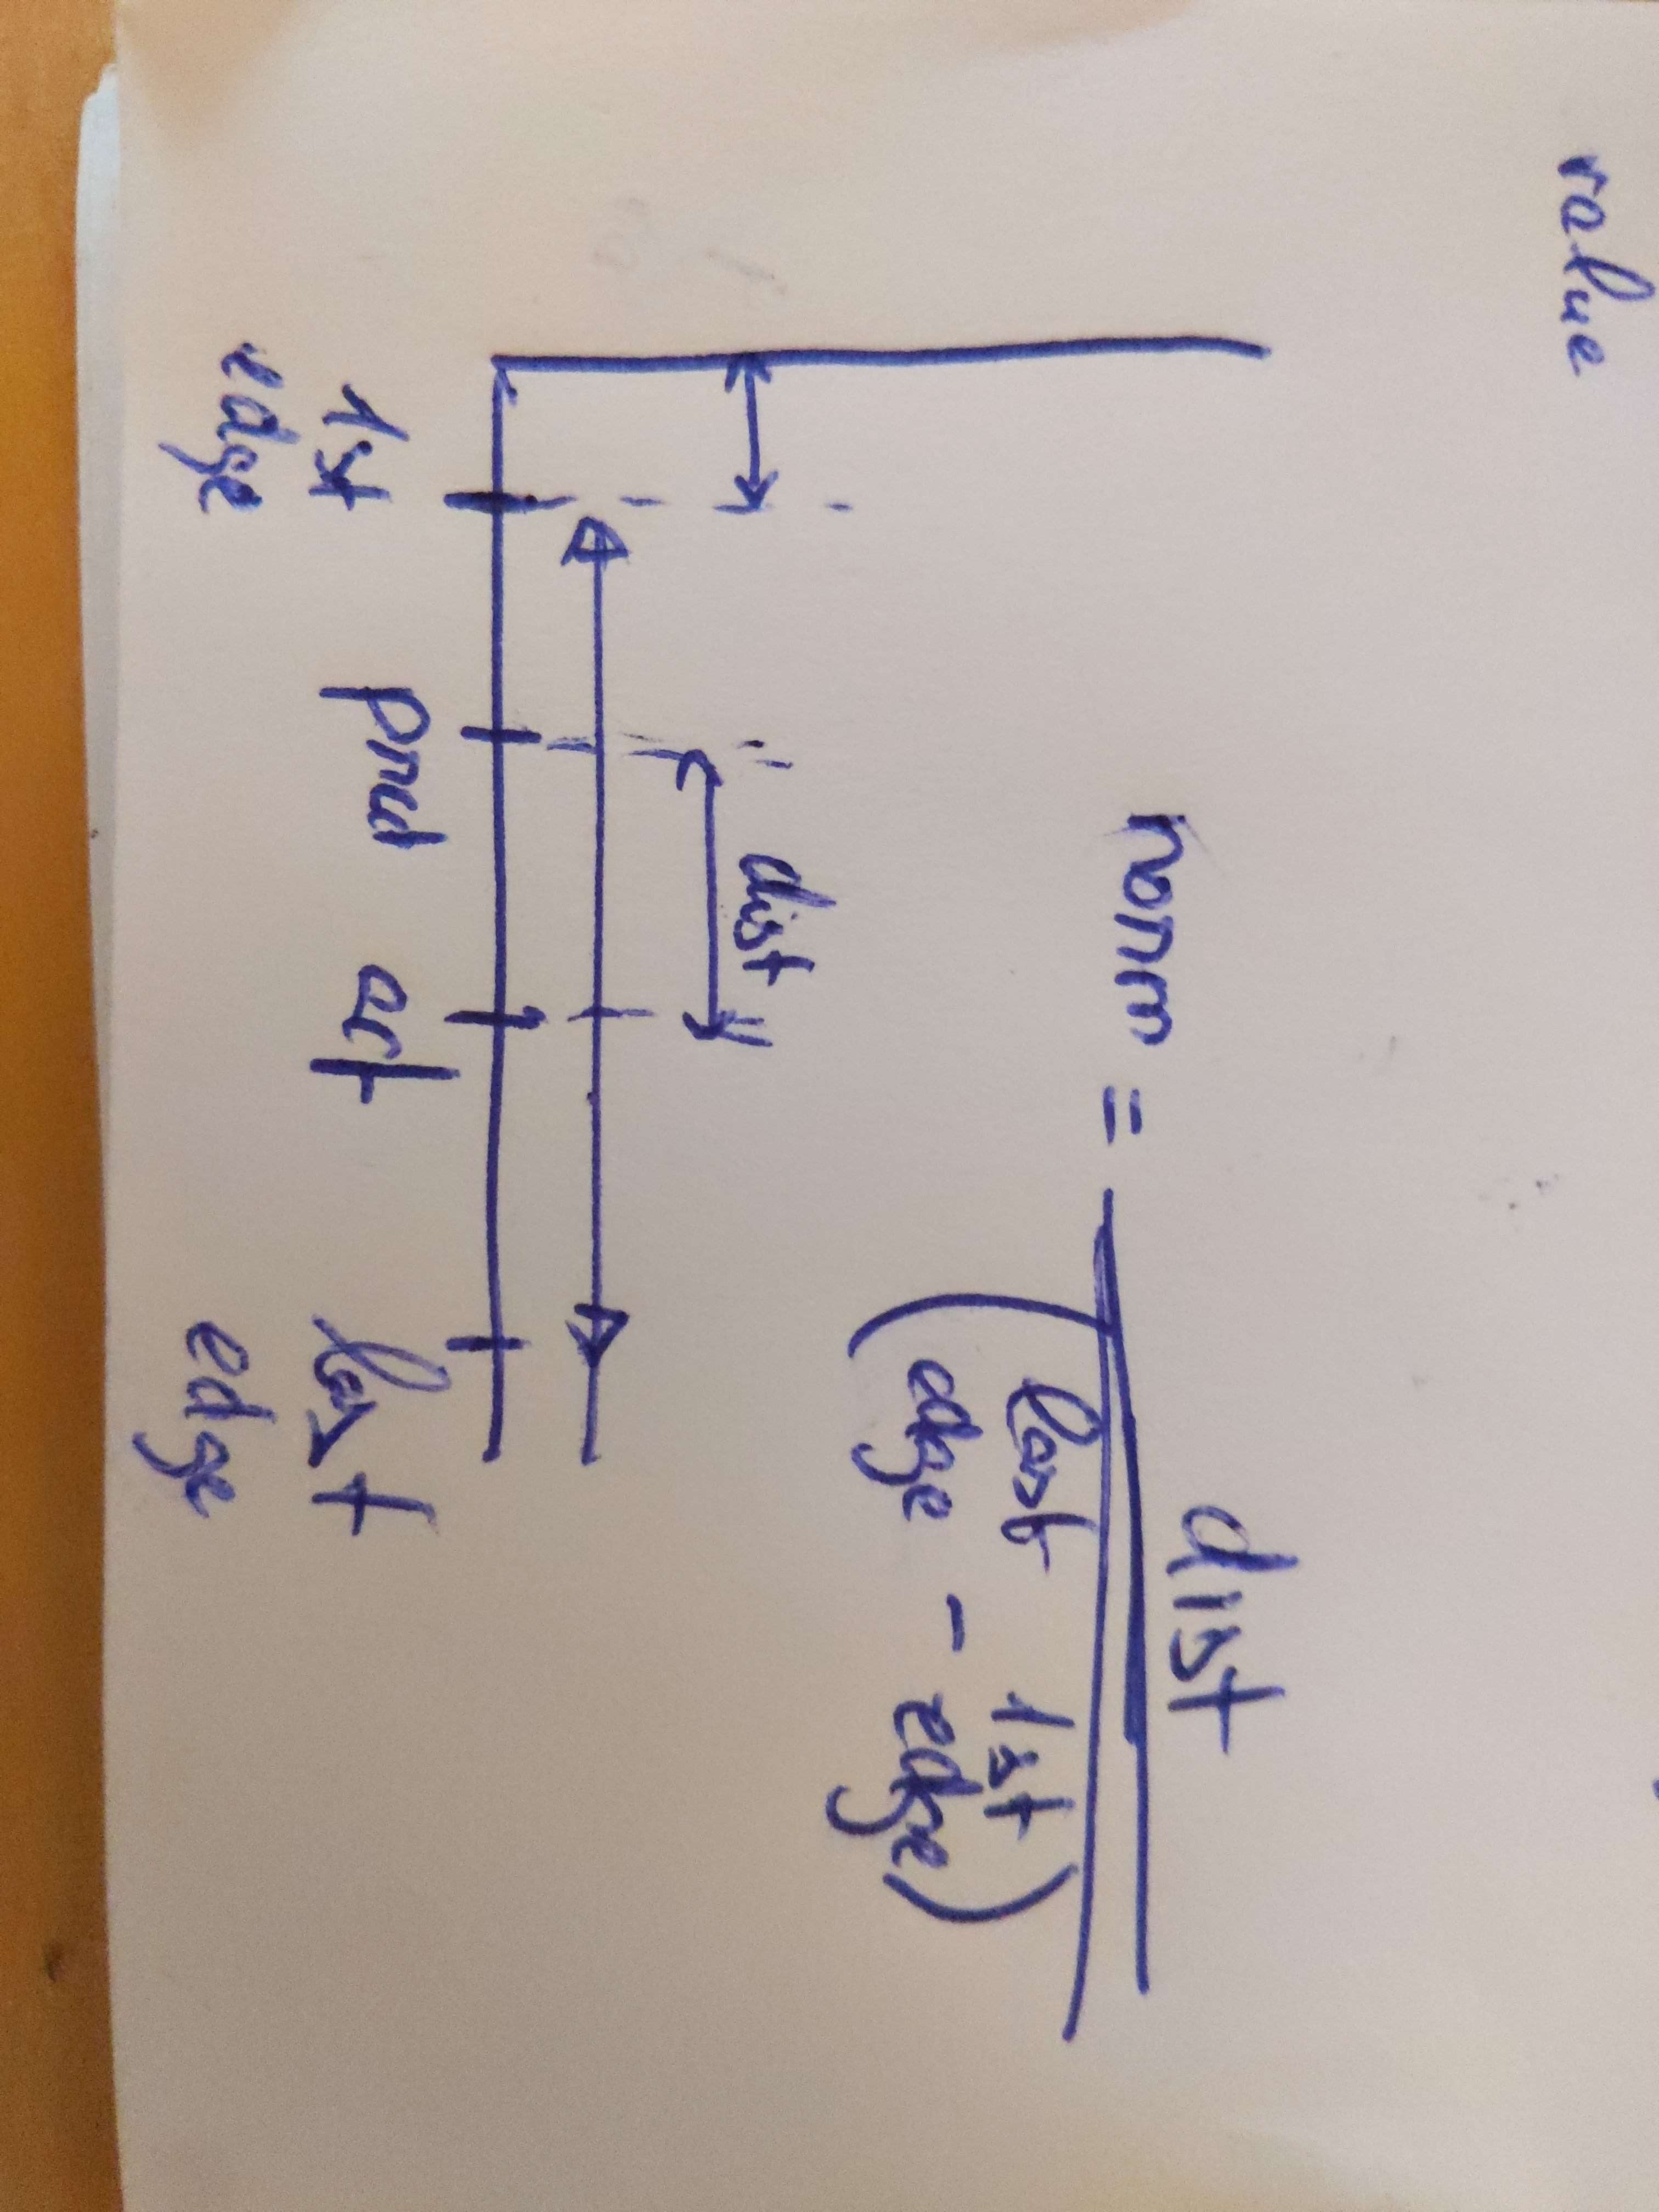 value
norm = dist
(last edge - 1st edge)
dist
1st edge
pred
act
last edge